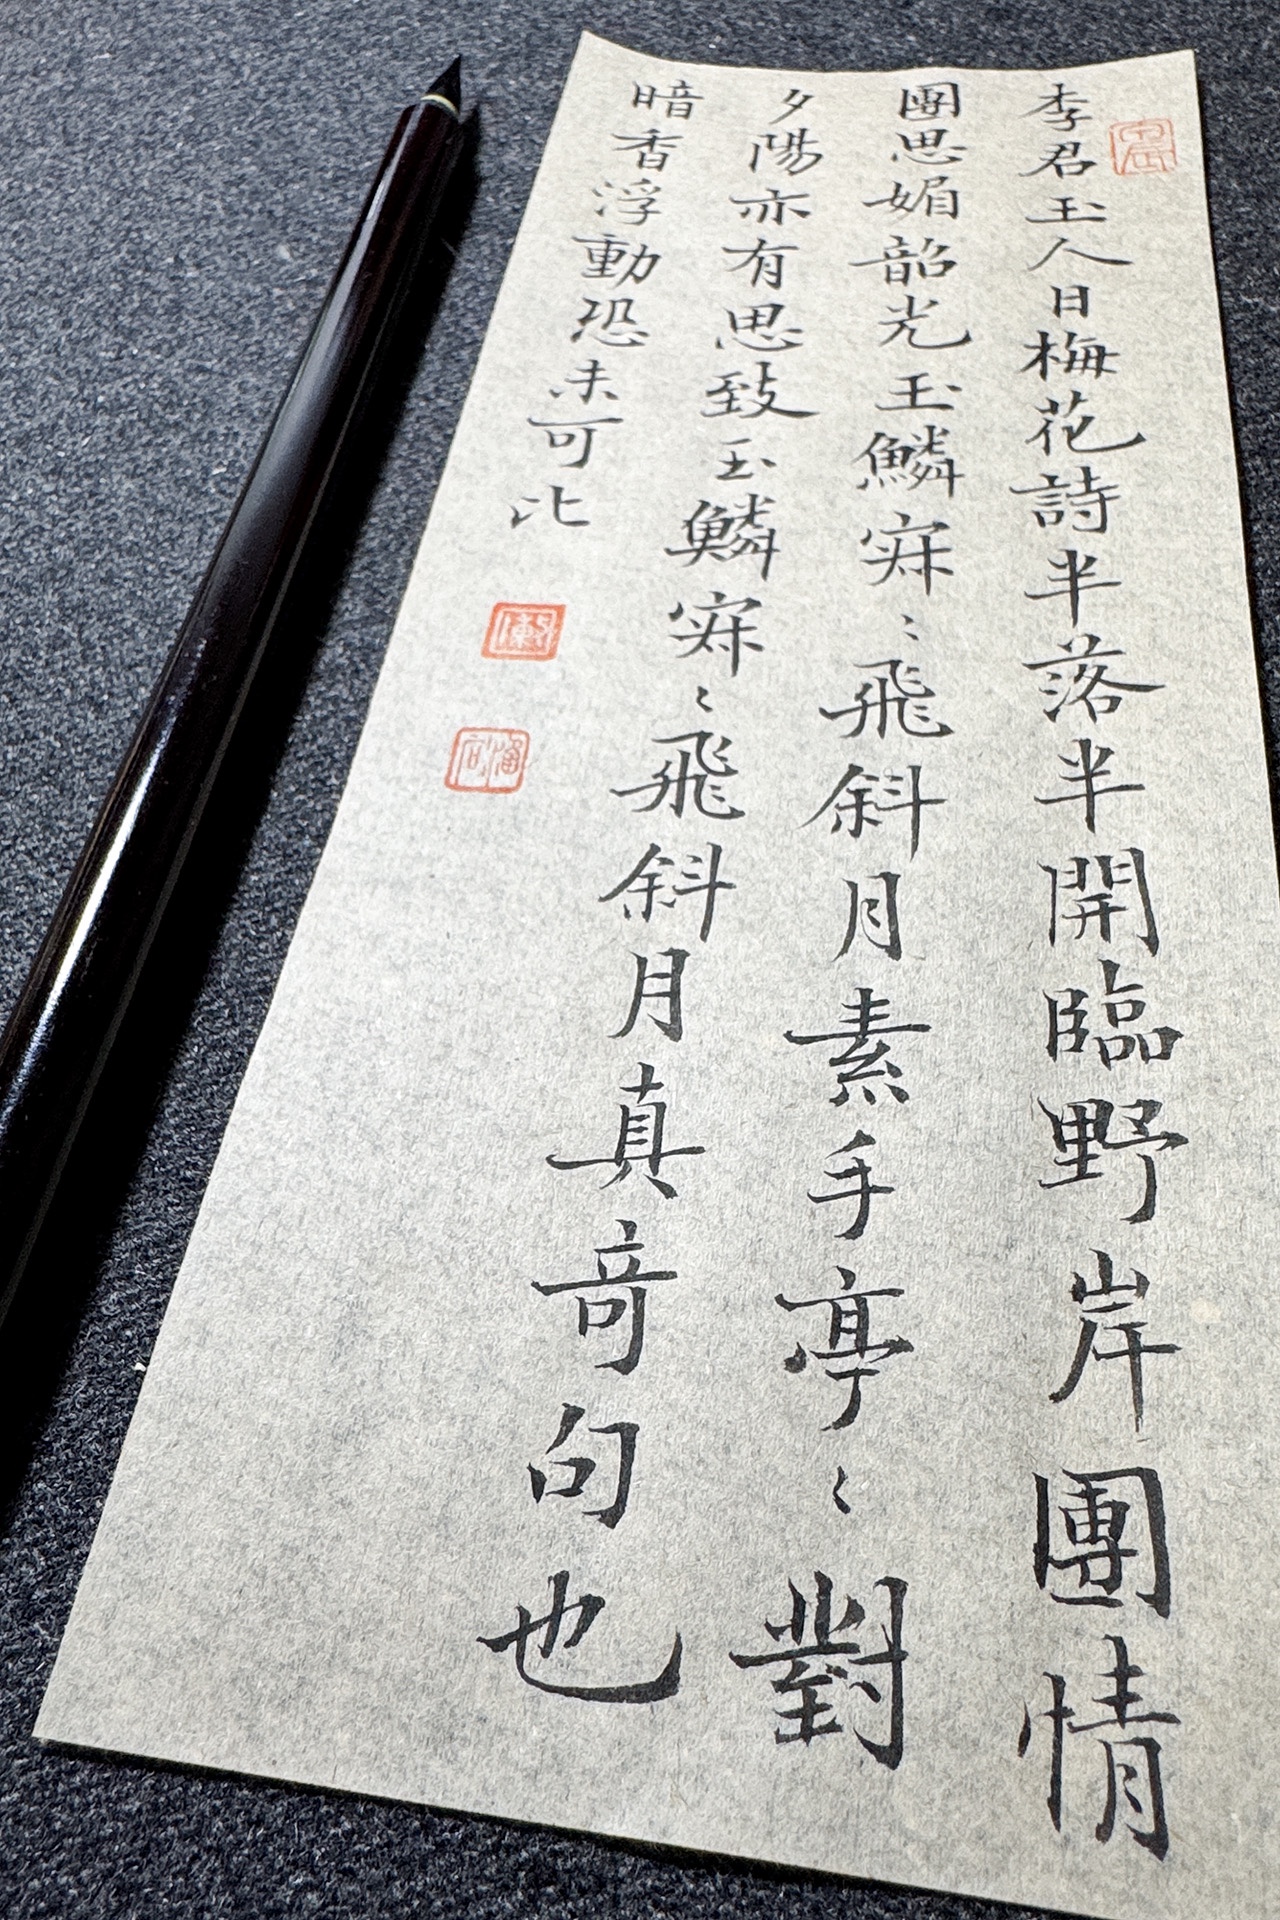 李君玉人日梅花詩半落半開臨野岸團情
團思媚韶光玉鱗寂〻飛斜月素手亭〻對
夕陽亦有思致玉鱗寂〻飛斜月真奇句也
暗香浮動恐未可比